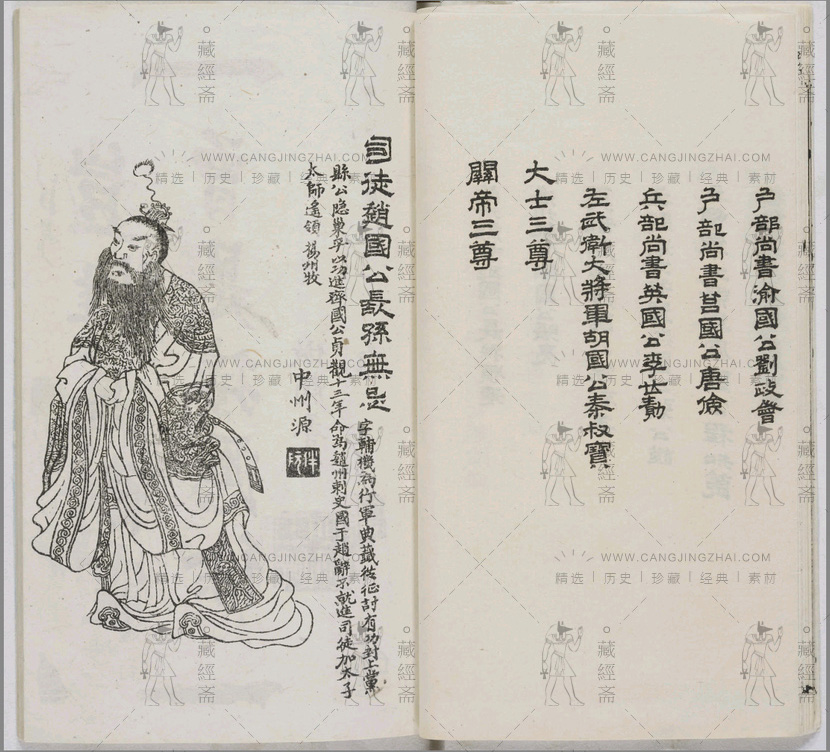 戶部尚書渝國公劉政會
戶部尚書莒國公唐儉
兵部尚書英國公李世勣
左武衛大將軍胡國公秦叔寶
大士三尊
關帝三尊
司徒趙國公長孫無忌 字輔機為行軍典籤從征討有功封上黨
縣公隐巢平以功進齊國公貞觀十三年命為趙州刺史國于趙辭不就進司徒加太子
太師遙領揚州牧
中州源
伴阮
藏經斋
WWW.CANGJINGZHAI.COM
精选 | 历史 | 珍藏 | 经典 | 素材